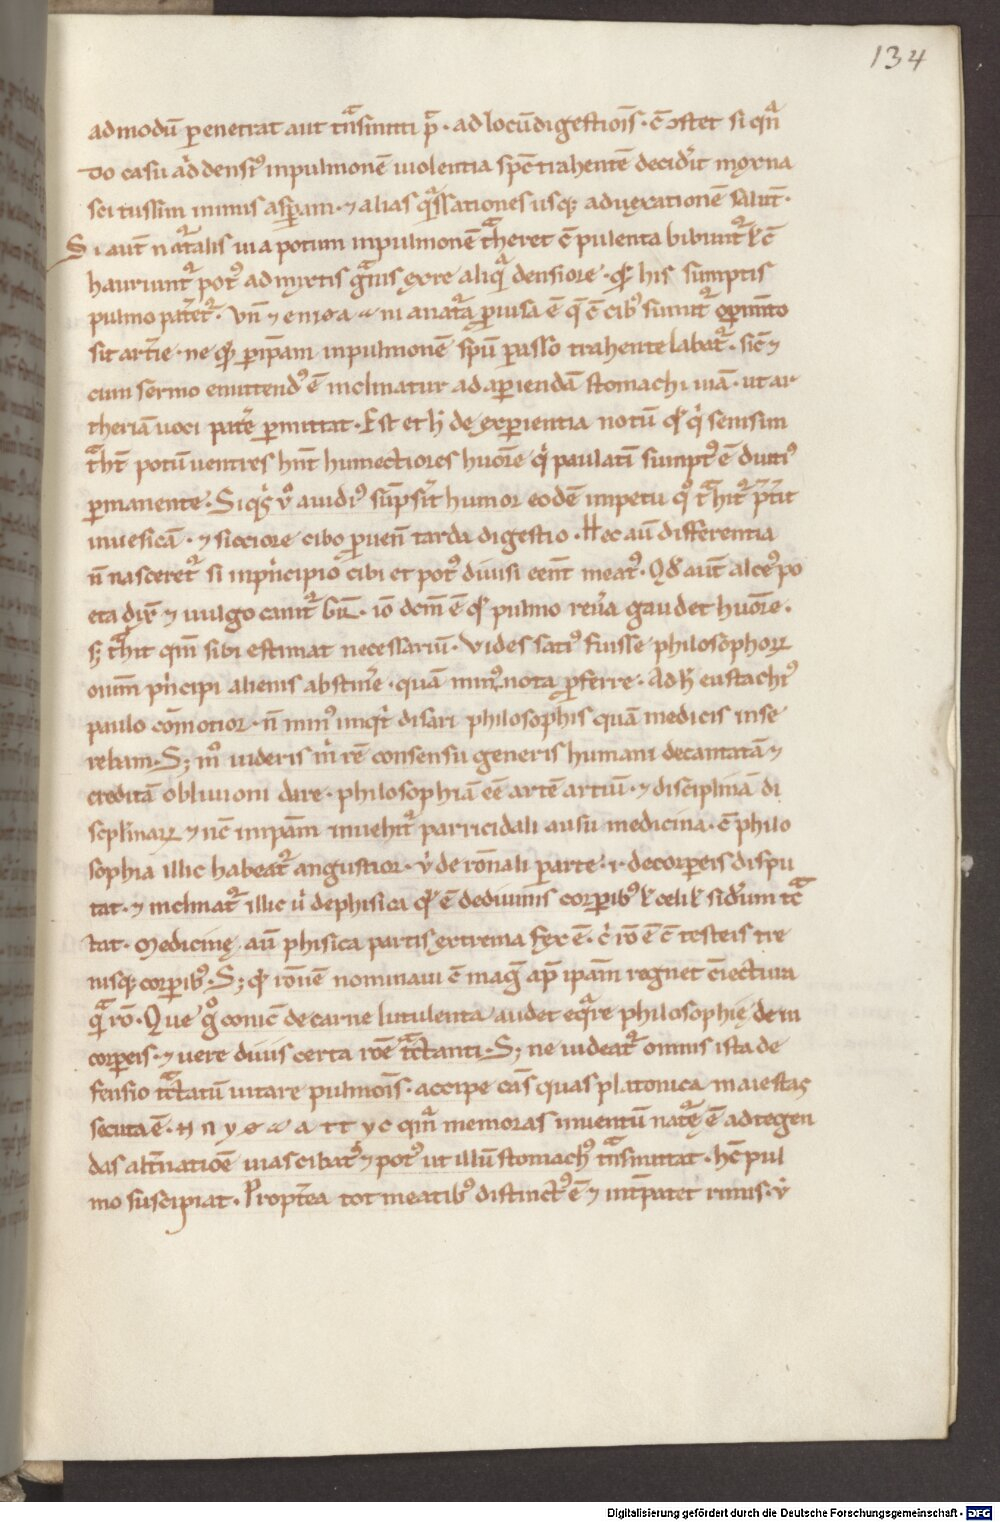 134
admodū penetrat aut tͣnsmitti p̄ͣ · ad locū digestiōīs · c̄ ↄstet si qn̄ͣ
do casu aͥd densiꝰ in pulmonē uiolentia sp̄c̄ trahentē deciđit moxna
sci tussim nimis asꝑam · ⁊ alias qͣssationes usq; ad uexationē salut̄ ·
Si aut̄ natͣlis uia potum in pulmonē tͣheret c̄ pulenta bibunt᷑ ł c̄
hauriunt᷑ potꝰ admixtis gͣnis ex re aliqͣ densiore · qđ his sumptis
pulmo patet᷑ · Vn̄ ⁊ ni anatͣa ꝑuisa ē q̄ c̄ cibꝰ sumit᷑ opim̄to
sit art̄ie · ne qđ ꝑ ip̄am in pulmonē sp̄ū passo trahente labat᷑ · sic̄ ⁊
cum sermo emittendꝰ ē inclinatur ad aꝑiendā stomachi uiā · ut ar
theriā uoci patē ꝑmittat · Est et h̄ de exꝑientia notū qđ qͥ sensim
tͣht̄ potū uentres hn̄t humectiores huōre qͥ paulatī sumptꝰ ē diutiꝰ
ꝑmanente · Siqͥs ů auidiꝰ sūpsīt humor eodē impetu qͦ tͣhit᷑ p̄t̄it
in uesicā · ⁊ sicciore cibo ꝑuen̄ tarda digestio · Hec aū differentia
n̄ nasceret᷑ si in pͥncipio cibi et potꝰ diuisi een̄t meatꝰ · Qđ aut̄ alceꝰ po
eta dix̄ ⁊ uulgo canit᷑ · iō dcm̄ ē qđ pulmo reůa gaudet huōre ·
s; tͣhit qm̄ sibi estimat necessariū · Vides satiꝰ fuisse philosophoꝝ
oium̄ pͥncipi alienis abstin̄e · quā minꝰ nota ꝑferre · Ad h̄ eustachiꝰ
paulo cōmotior · n̄ minꝰ inqͥt disari philosophis quā medicis inse
rebam · S; mͦ uideris m̊ rē consensu generis humani decantatā ⁊
creditā obliuioni dare · philosophiā eē artē artiū · ⁊ disciplinā di
scpl'inaꝝ ⁊ nc̄ in ip̄am inuehit᷑ parricidali ausu medicina · c̄ philo
sophia illic habeat᷑ angustior · ů de ron̄ali parte · i · de corꝑeis dispu
tat · ⁊ inclinat᷑ illic ů de phisica qđ ē de diuinis corꝑibꝰ ł celi ł siđum tc̄ͣ
tat · Medicinę · aū phisica partis extrema fex ē · c̊ rō ē c̄ testeis tre
nisq; corꝑibꝰ · S; qđ ronē nominaui c̄ mag̊ ap̄ ip̄am regnet cīectura
qͣ rō · Que gͦ conic̄ de carne lutulenta audet eqͣre philosophię de in
corꝑeis · ⁊ uere diuis certa rōē tͣctanti · S; ne uideat᷑ omnis ista de
fensio tͣctatū uitare pulmōis · accipe cās quas platonica maiestas
secuta ē · qm̄ͣ memoras inuentū natͣę ē ad tegen
das alt̄natiōē uias cibat᷑ ⁊ potꝰ ut illū stomachꝰ tͣnsmittat · hc̄ pul
mo suscipiat · Propt̄ea tot meatibꝰ distinctꝰ ē ⁊ int̄patet rimis · ů
Digitalisierung gefördert durch die Deutsche Forschungsgemeinschaft · DFG